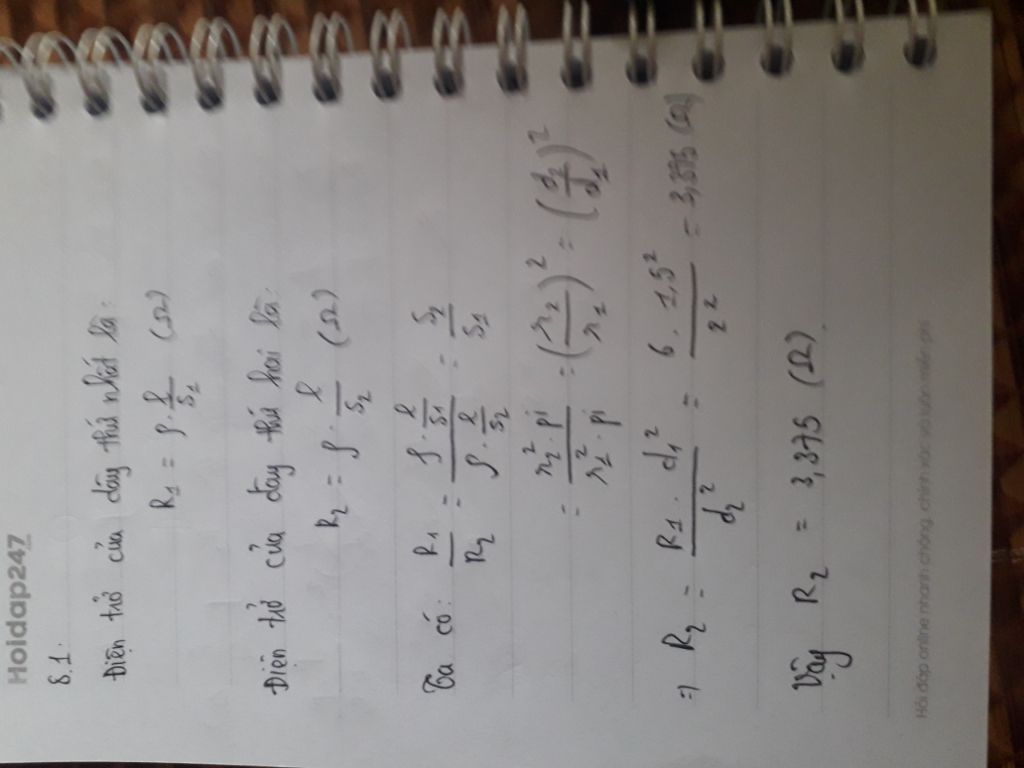 Hoidap247
8.1.
Điện trở của dây thứ nhất là:
R₁ = ρ · l/S₁ (Ω)
Điện trở của dây thứ hai là:
R₂ = ρ · l/S₂ (Ω)
Ta có: R₁/R₂ = (ρ · l/S₁)/(ρ · l/S₂) = S₂/S₁
= (r₂² · pi)/(r₁² · pi) = (r₂/r₁)² = (d₂/d₁)²
=> R₂ = (R₁ · d₁²)/d₂² = (6 · 1,5²)/2² = 3,375 (Ω)
Vậy R₂ = 3,375 (Ω).
Hỏi đáp online nhanh chóng, chính xác và luôn miễn phí